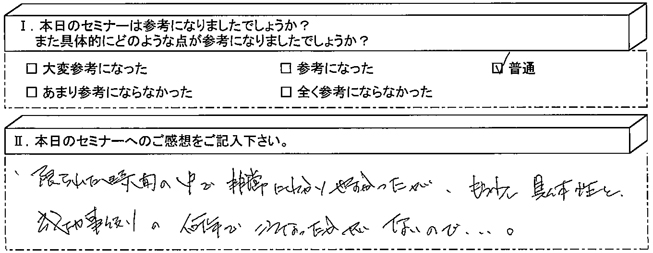 Ⅰ．本日のセミナーは参考になりましたでしょうか？
また具体的にどのような点が参考になりましたでしょうか？
□ 大変参考になった □ 参考になった ☑ 普通
□ あまり参考にならなかった □ 全く参考にならなかった
Ⅱ．本日のセミナーへのご感想をご記入下さい。
限られた時間の中で非常にわかりやすかったが、もう少し具体性と、
事例の ないので・・・。